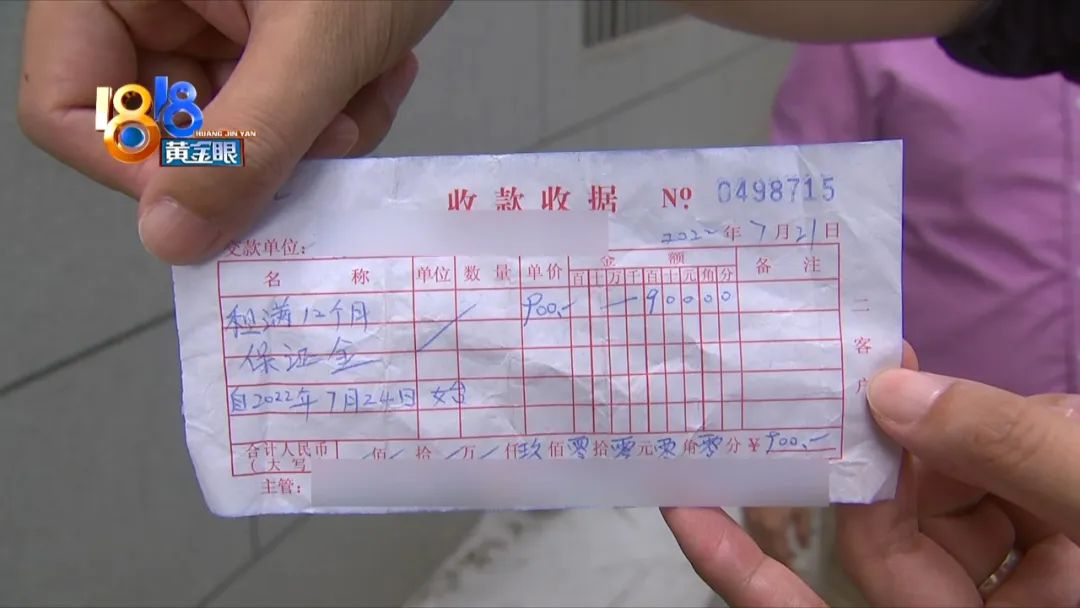 1818
HUANG JIN YAN
黄金眼
收款收据 Nº 0498715
2022年7月21日
交款单位:
名称 单位 数量 单价 金额 备注
百十万千百十元角分
租满12个月 900.- 90000
保证金
自2022年7月24日 始
二客户
合计人民币 佰 拾 万 仟玖佰零拾零元零角零分 ¥900.-
(大写
主管: